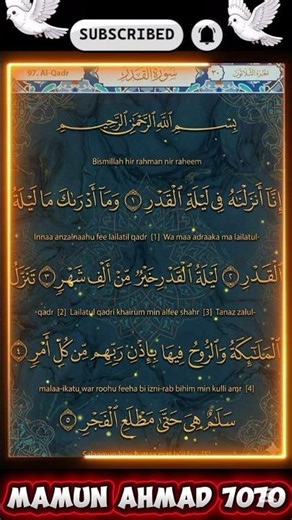 SUBSCRIBED
97. Al-Qadr سُورَةُ القَدْرِ ٣٠ الجُزْءُ الثَّلَاثُونَ
بِسْمِ اللَّهِ الرَّحْمَٰنِ الرَّحِيمِ
Bismillah hir rahman nir raheem
إِنَّا أَنزَلْنَاهُ فِي لَيْلَةِ الْقَدْرِ ١ وَمَا أَدْرَاكَ مَا لَيْلَةُ
Innaa anzalnaahu fee lailatil qadr [1] Wa maa adraaka ma lailatul-
الْقَدْرِ ٢ لَيْلَةُ الْقَدْرِ خَيْرٌ مِّنْ أَلْفِ شَهْرٍ ٣ تَنَزَّلُ
qadr [2] Lailatul qadri khairum min alfee shahr [3] Tanaz zalul-
الْمَلَائِكَةُ وَالرُّوحُ فِيهَا بِإِذْنِ رَبِّهِم مِّن كُلِّ أَمْرٍ ٤
malaa-ikatu war roohu feeha bi izni-rab bihim min kulli amr [4]
سَلَامٌ هِيَ حَتَّىٰ مَطْلَعِ الْفَجْرِ ٥
MAMUN AHMAD 7070